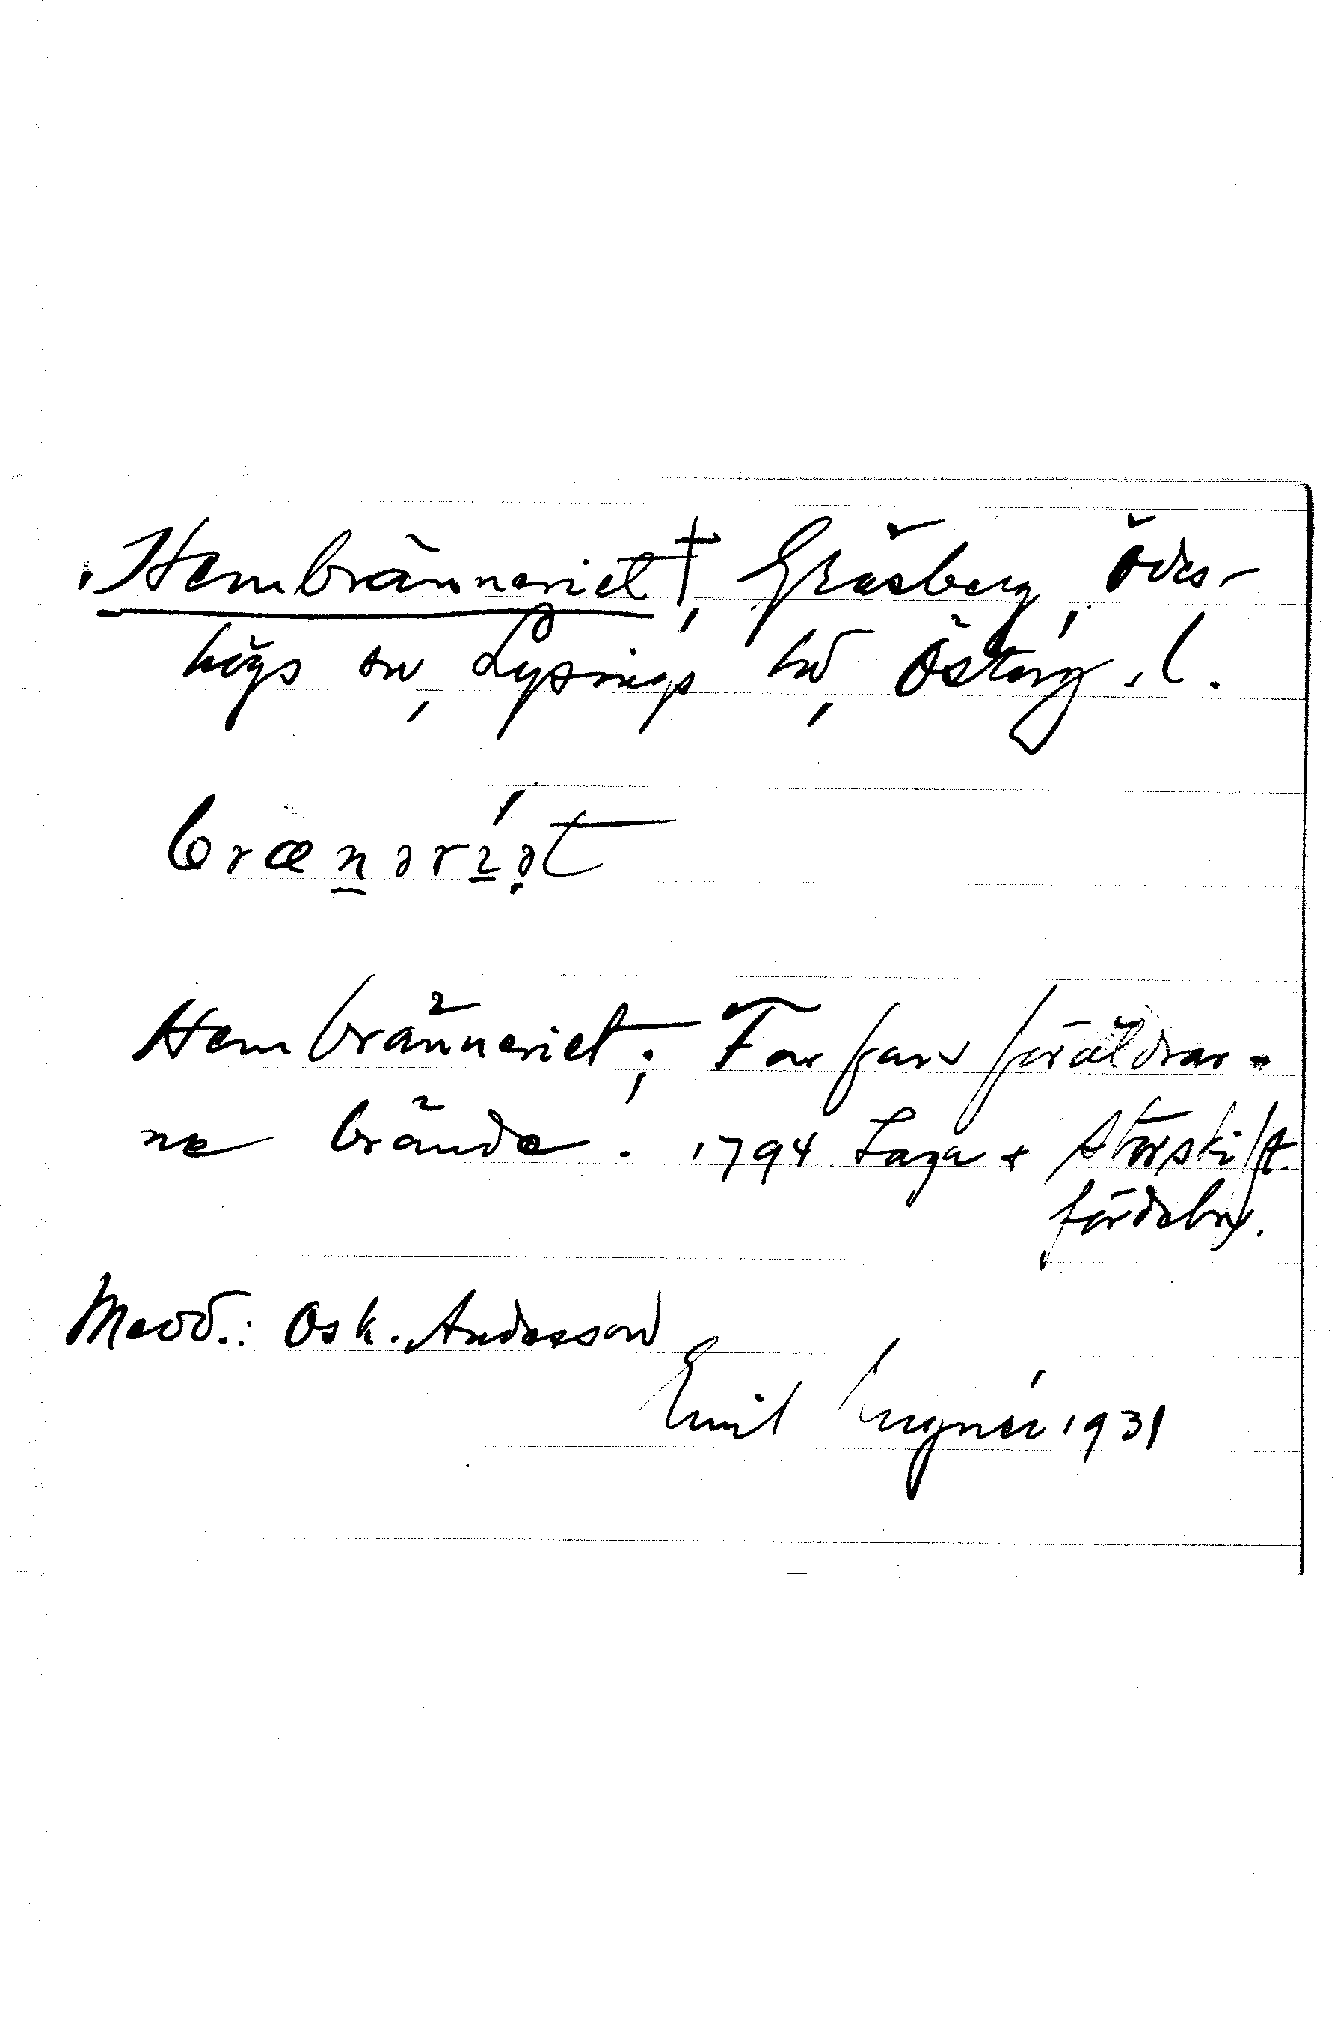 Hembränneriet †, Gråsberg, Ödes-
högs sn, Lysings hd, Österg. l.
brænəríət
Hembränneriet; Farfars föräldrar-
ne brände. 1794 Laga + Storskift
fördelny.
Medd.: Osk. Andersson
Emil 1931